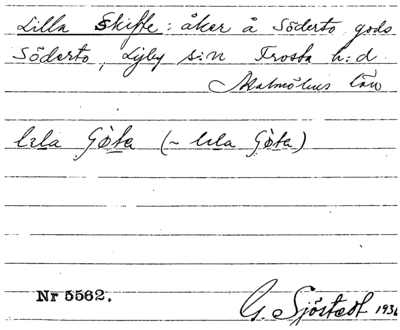 Lilla Skifte: åker å Söderto gods
Söderto, Lyby s:n Frosta h:d
Malmöhus län
Göta (~ Göta)
Nr 5562.
G. Sjöstedt 1936